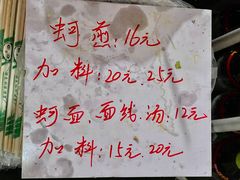 蚵煎:16元
加料:20元.25元
蚵面.面线.汤:12元
加料:15元.20元